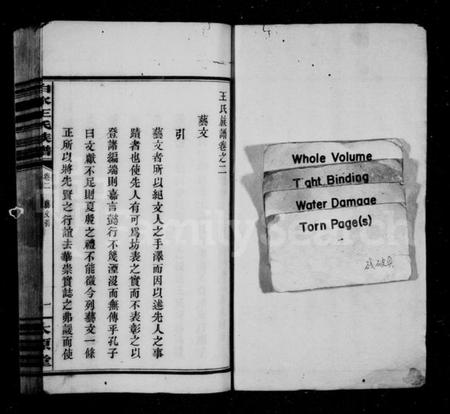 王氏族譜卷之二
藝文
引
藝文者所以紹文人之手澤而因以述先人之事
蹟者也使先人有可爲坊表之實而不表彰之以
登諸編端則嘉言懿行不幾湮沒而無傳乎孔子
曰文獻不足則夏殷之禮不能徵今列藝文一條
正所以將先賢之行誼去華崇實誌之弗諼而使
白水王氏族譜
卷二
藝文引
一
太原堂
Whole Volume
Tight Binding
Water Damage
Torn Page(s)
FamilySearch